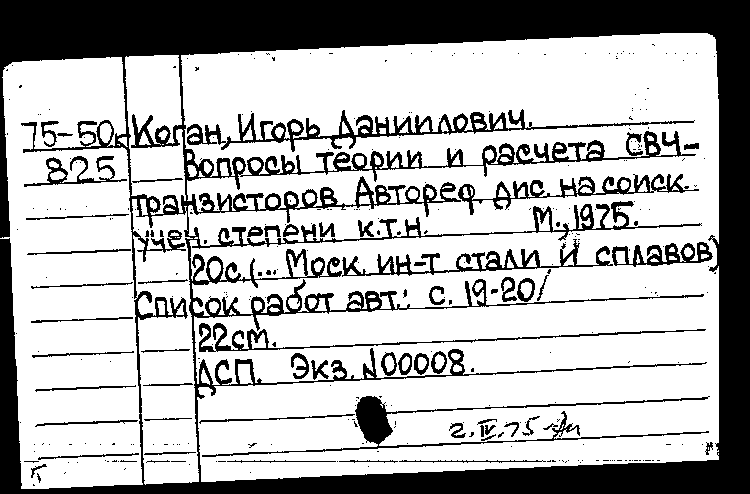 75-50к Коган, Игорь Даниилович.
825 Вопросы теории и расчета СВЧ-
транзисторов. Автореф. дис. на соиск.
учен. степени к.т.н. М., 1975.
20с. (... Моск. ин-т стали и сплавов)
Список работ авт.: с. 19-20/
22см.
ДСП. Экз. №00008.
2.IV.75